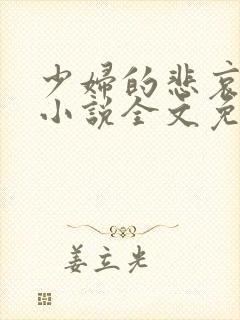 少婦的悲哀
小說全文免
姜立光